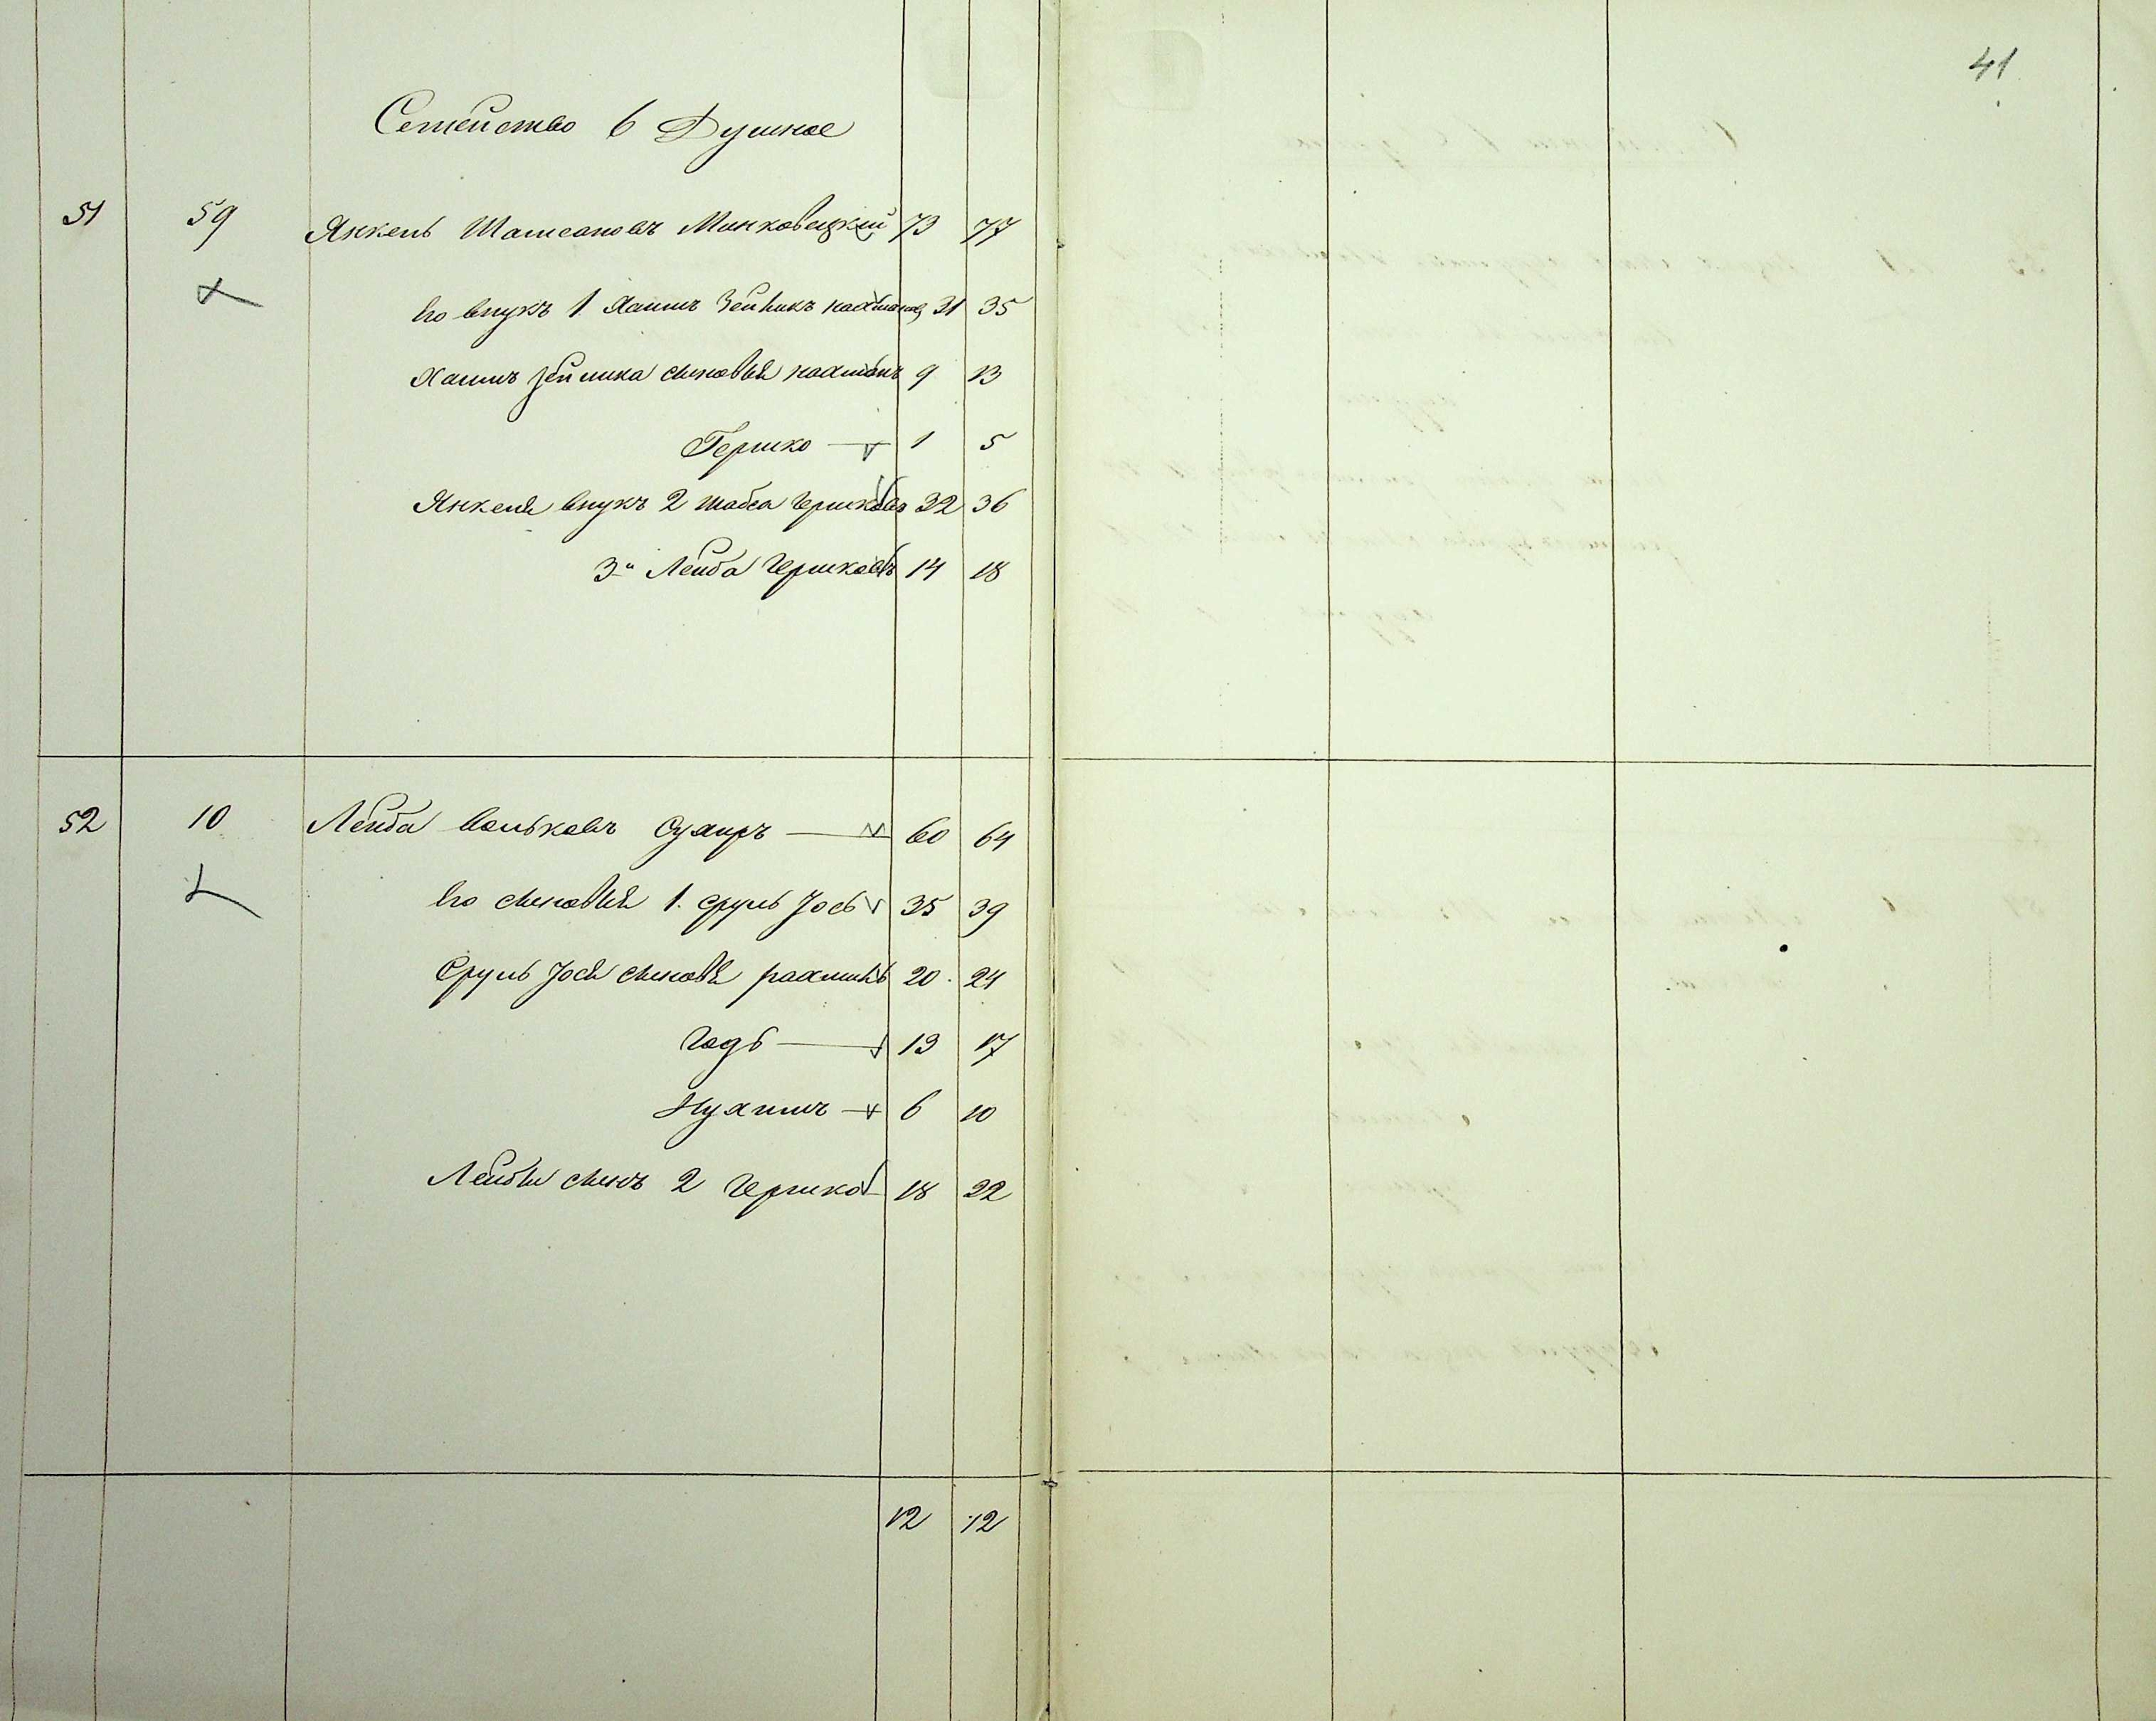 41
Семейство 6 Душное
51 59 Янкель Шамсоновъ Маньковецкий 73 77
Его внукъ 1 Хаимъ Зейликъ Нахмановъ 31 35
Хаимъ Зейлика сыновья Нахманъ 9 13
Гершко 1 5
Янкеля внукъ 2 Шабса Гершковъ 32 36
3й Лейба Гершковъ 14 18
52 10 Лейба Вольковъ Сухиръ 60 64
Его сыновья 1. Сруль Іось 35 39
Сруль Іося сыновья Рахмиль 20 24
Гадь 13 17
Нухимъ 6 10
Лейбы сынъ 2 Гершко 18 22
12 12